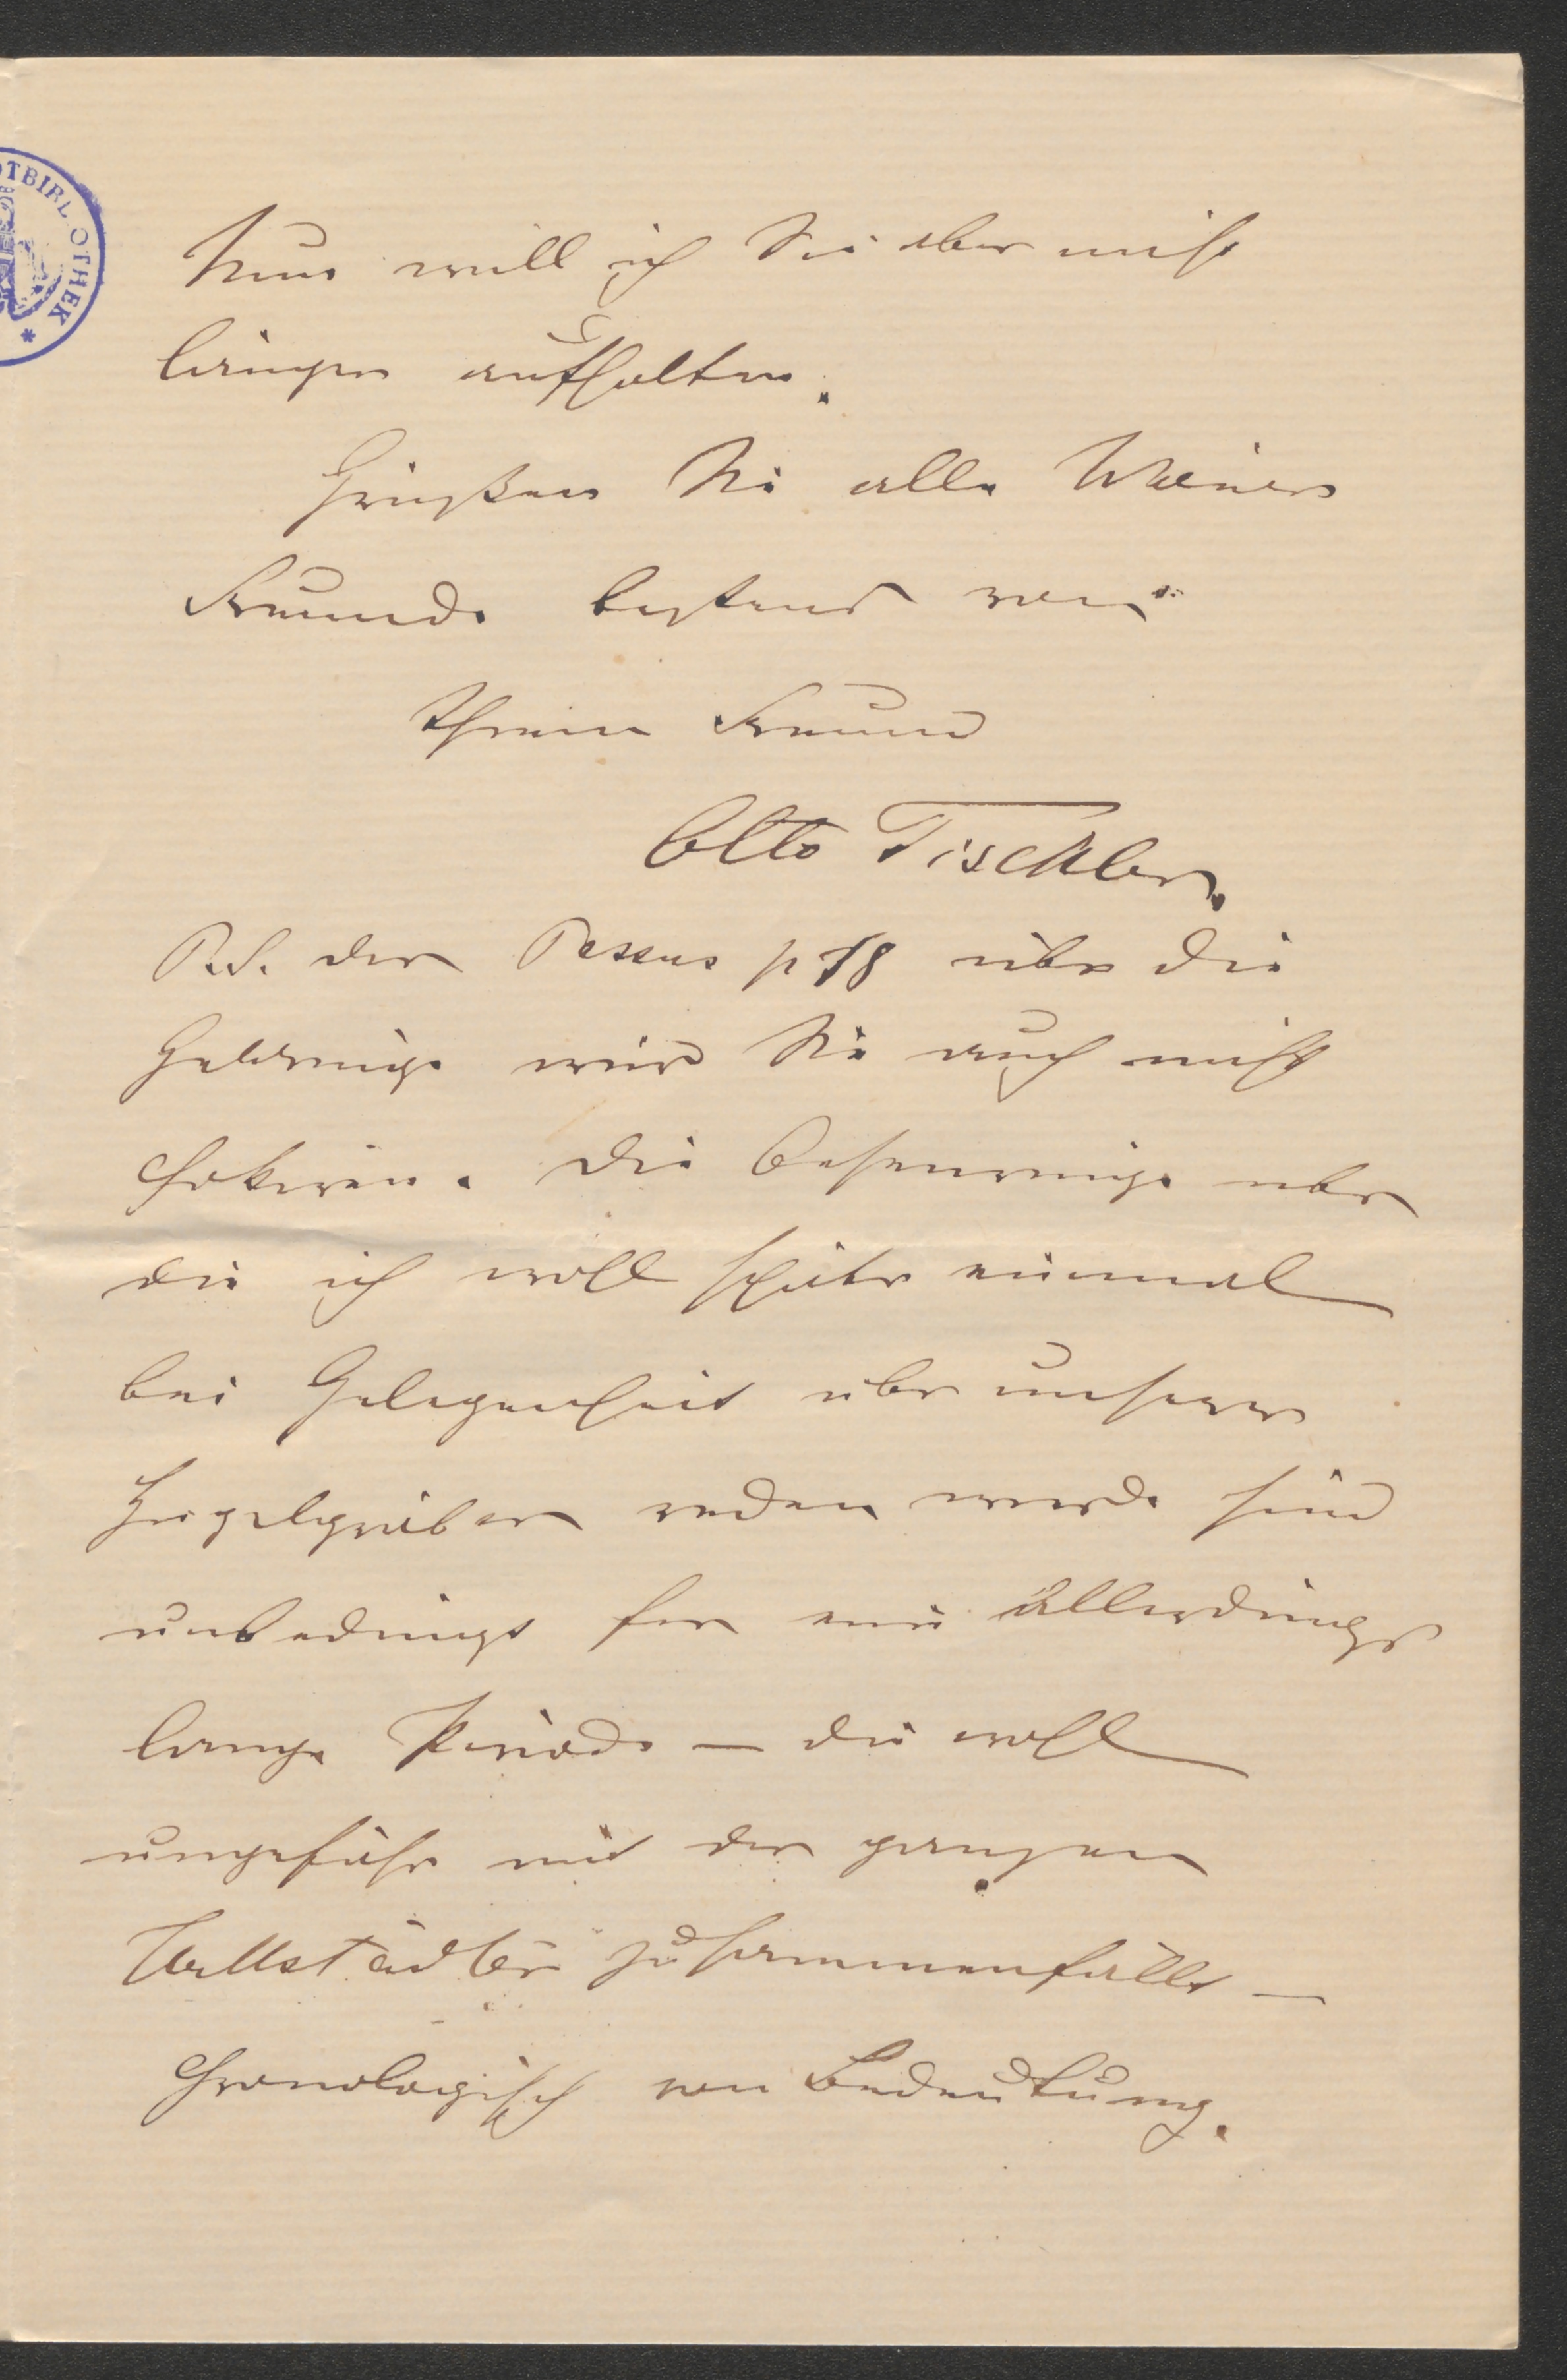 Nun will ich Sie aber nicht
länger aufhalten.
Grüßen Sie alle Wiener
Freunde bestens von
Ihrem Freund
Otto Tischler.
P.S. der Passus p 18 über die
wird Sie auch nicht
chokiren. Die Ohrringe über
die ich wohl später einmal
bei Gelegenheit über unsere
Hügelgräber reden werde sind
unbedingt für eine allerdings
lange Periode — die wohl
ungefähr mit der ganzen
Hallstädter zusammenfällt —
chronologisch von Bedeutung.
OTBIBLIOTHEK *